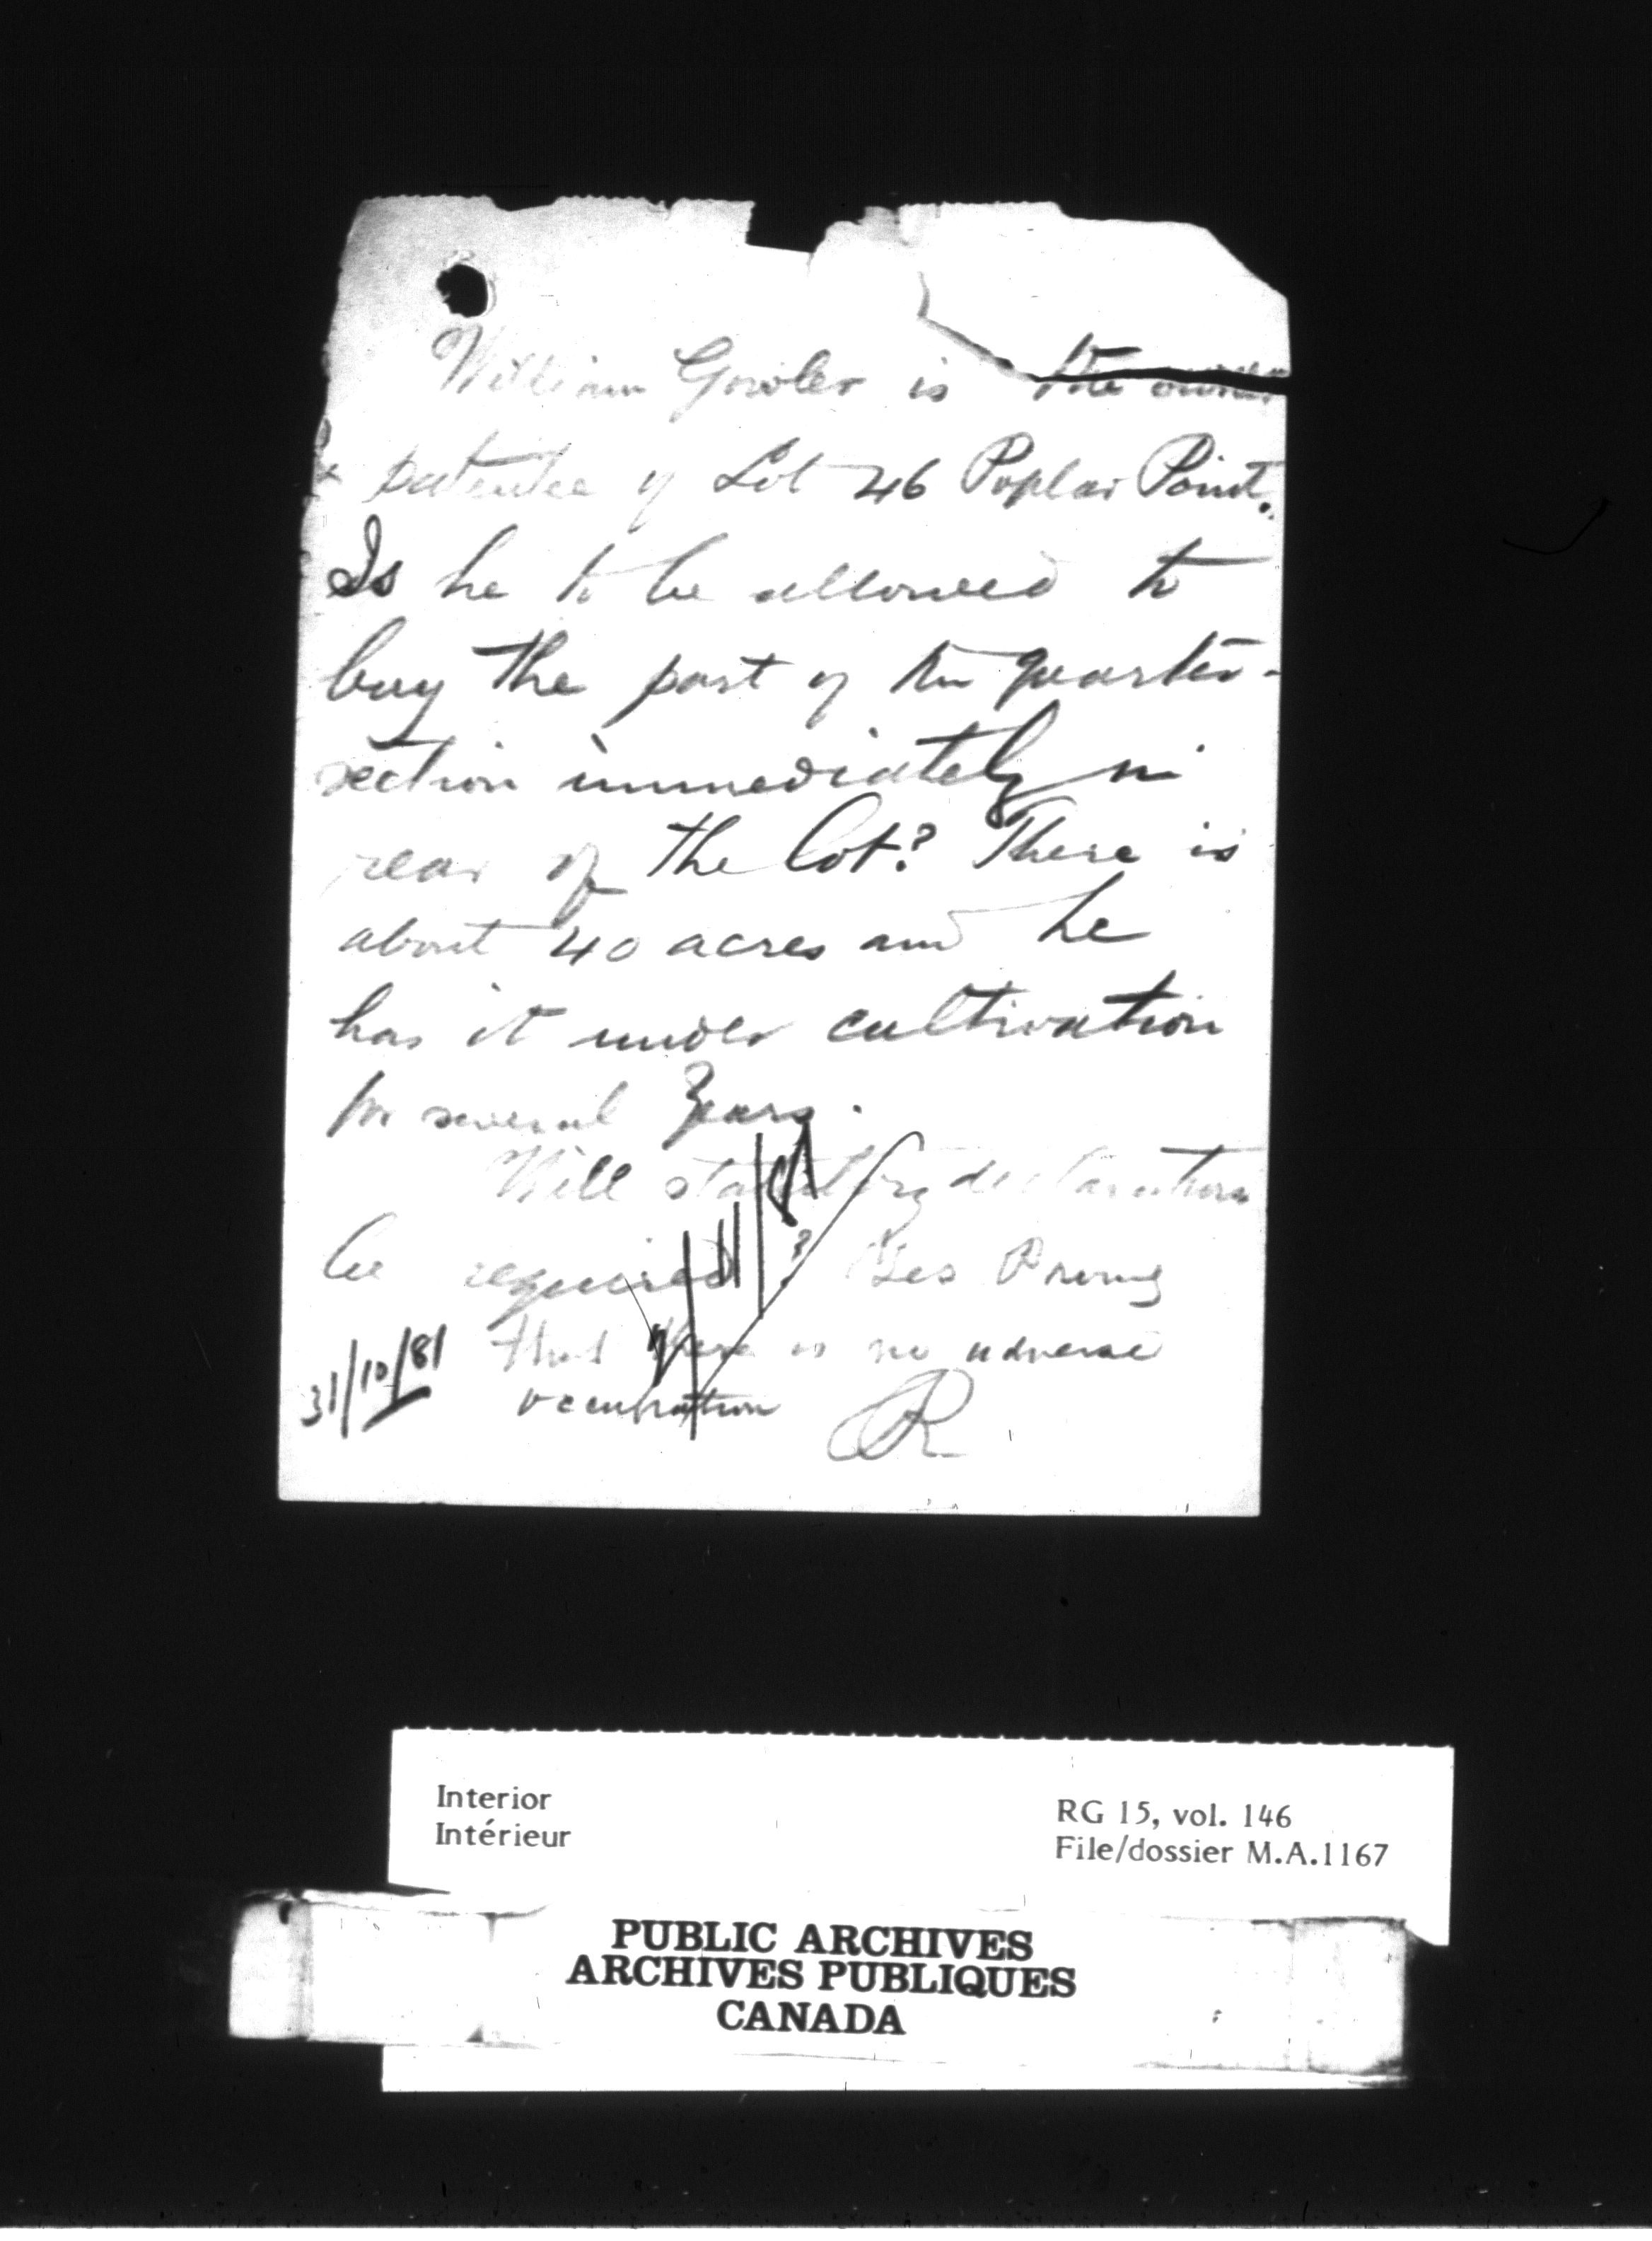 William Gowler is the owner
& patentee of Lot 46 Poplar Point.
Is he to be allowed to
buy the part of the quarter-
section immediately in
rear of the lot? There is
about 40 acres and he
has it under cultivation
for several years.
Will statutory declarations
be required? Yes Proving
that there is no adverse
occupation
31/10/81
Interior
Intérieur
RG 15, vol. 146
File/dossier M.A.1167
PUBLIC ARCHIVES
ARCHIVES PUBLIQUES
CANADA